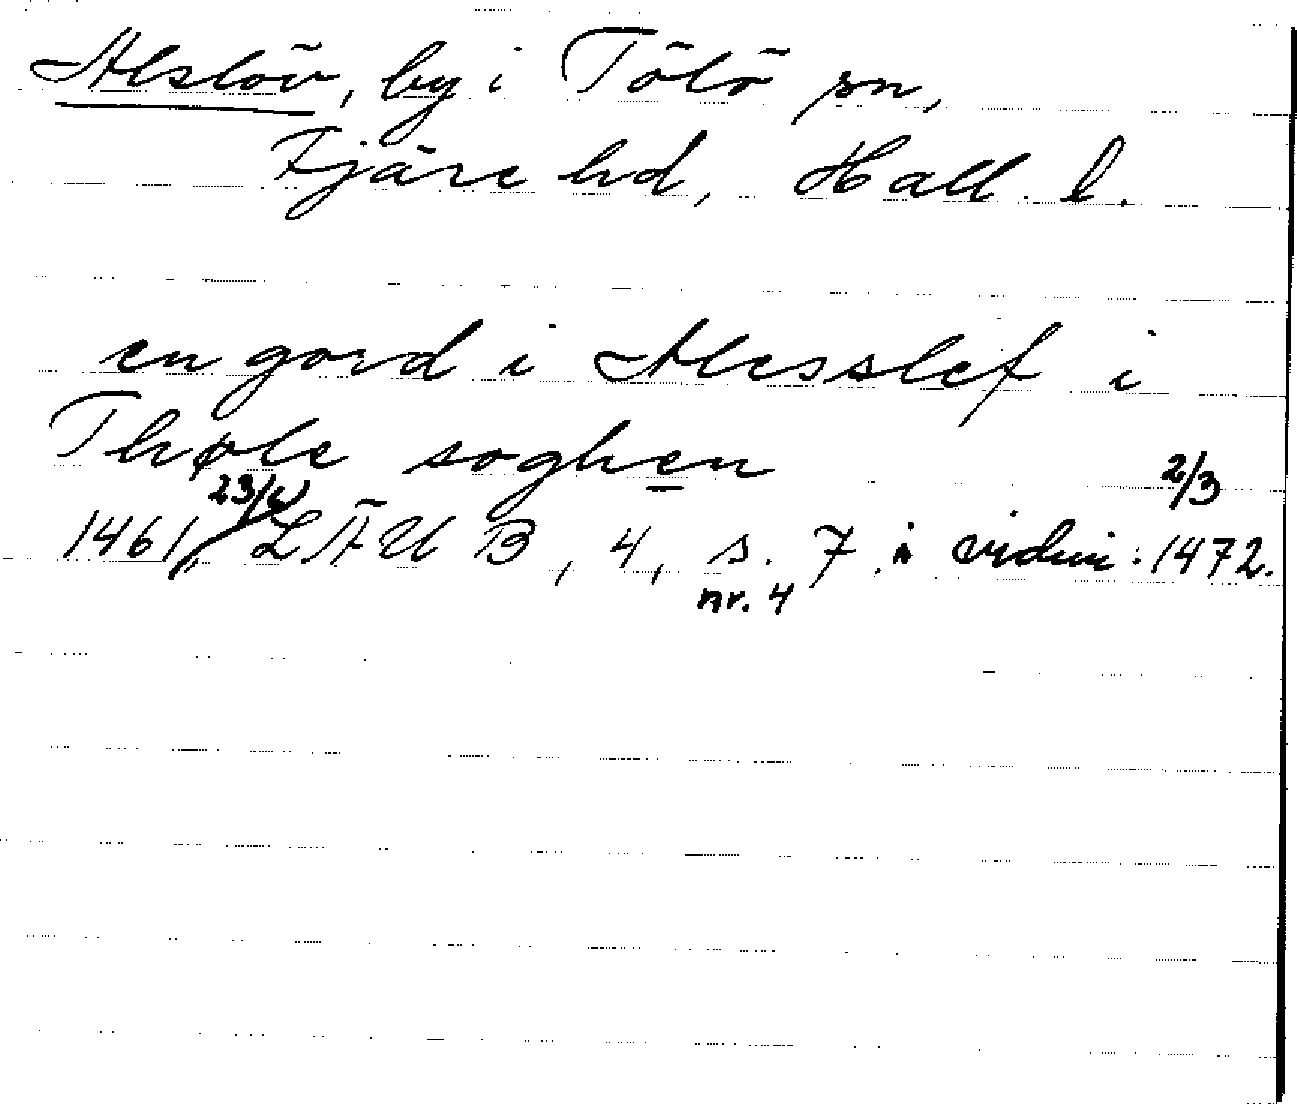 Alslöv, by i Tölö sn,
Fjäre hd, Hall. l.
en gord i Alesslef i
Thøle soghen
1461 23/4 LÄUB, 4, s. 7 i vidim. 2/3 1472.
nr. 4